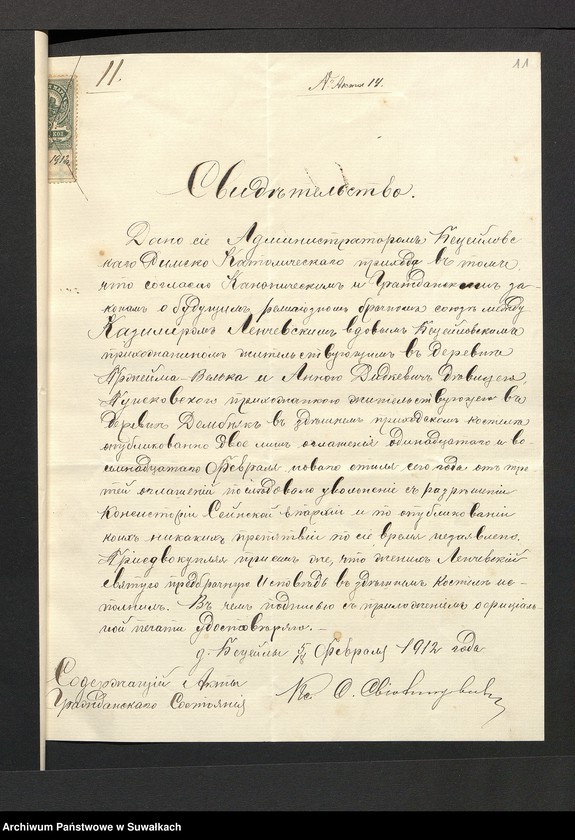 11.
11
Актъ 14.
КОП.
1912
Свидѣтельство.
Дано сіе Администраторомъ Бецейловс
каго Римско Католическаго прихода въ томъ,
что согласно Каноническимъ и Гражданскимъ за-
конамъ о будущемъ религіозномъ брачномъ союзѣ между
Казимиромъ Ленчевскимъ вдовымъ Бецейловскимъ
прихожаниномъ жительствующимъ въ деревнѣ
Вулька и Анною Дидкевичъ дѣвицею,
прихожанкою жительствующею въ
деревнѣ въ здѣшнемъ приходскомъ костелѣ
опубликовано двое лишь оглашенія одинадцатаго и во-
семнадцатаго Февраля новаго стиля сего года отъ тре
тей оглашеній послѣдовало увольненіе съ разрѣшенія
Консисторіи Сейнской епархіи и по опубликованіи
коихъ никакихъ препятствій по сіе время незаявлено.
Присовокупляя при семъ же, что женихъ Ленчевскій
святую предбрачную Исповѣдь въ здѣшнемъ костелѣ ис-
полнилъ. Въ чемъ подписью съ приложеніемъ оффиціаль-
ной печати удостовѣряю.—
д. Бецейлы 5/18 Февраля 1912 года
Содержащій Акты
Гражданскаго Состоянія
Кс. О.
Archiwum Państwowe w Suwałkach